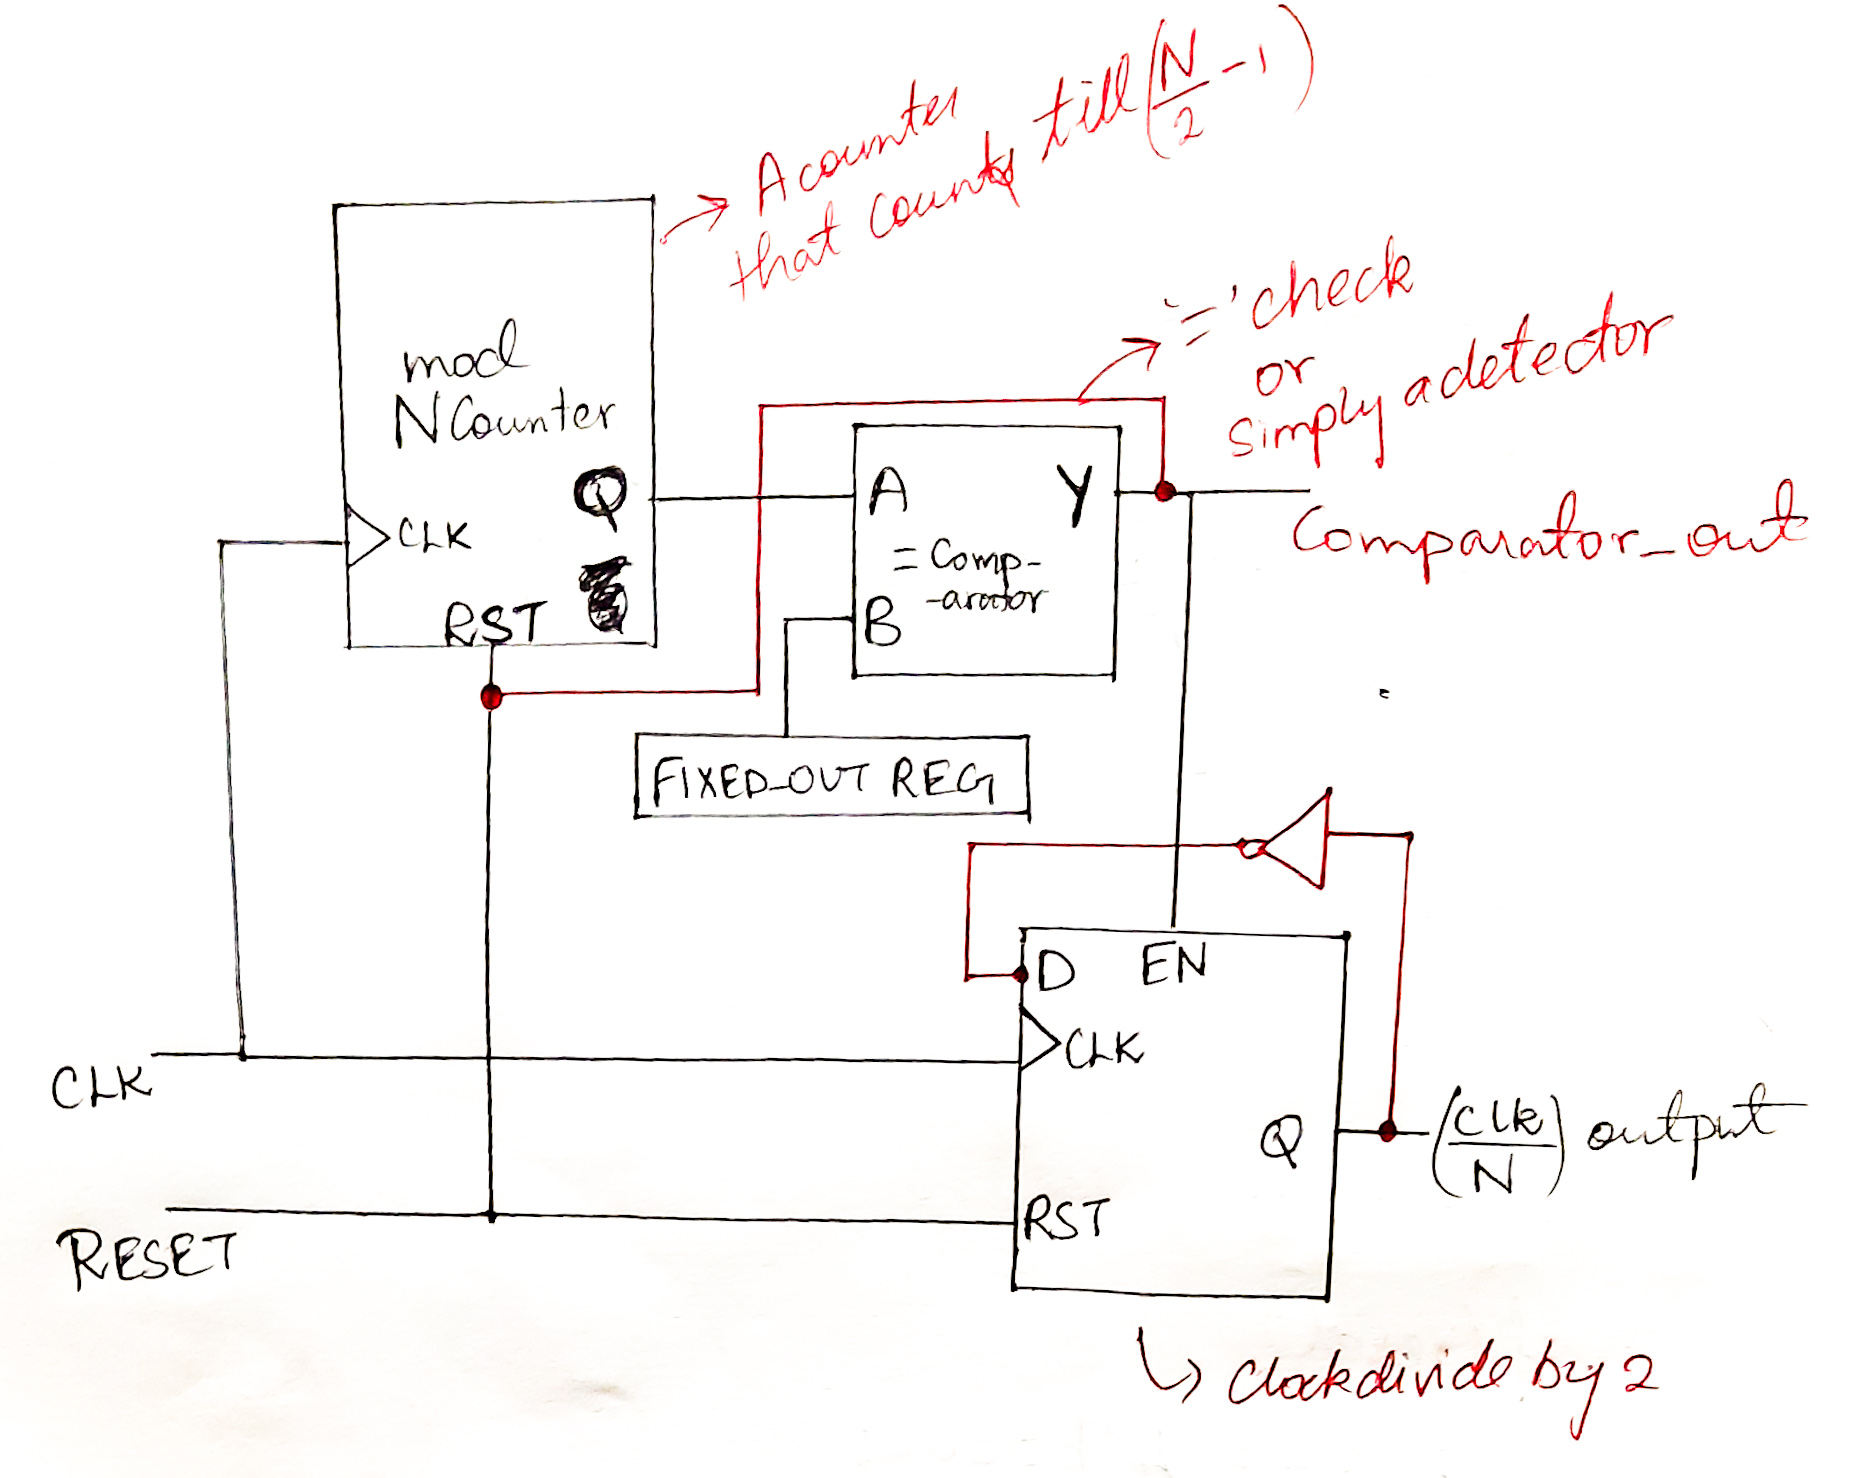 A counter
that counts till (N/2 - 1)
mod
N Counter
Q
CLK
RST
'=' check
or
simply a detector
A
Y
= Comp-
-arator
B
Comparator_out
FIXED_OUT REG
D
EN
CLK
Q
RST
CLK
RESET
(Clk/N) output
↳ Clock divide by 2